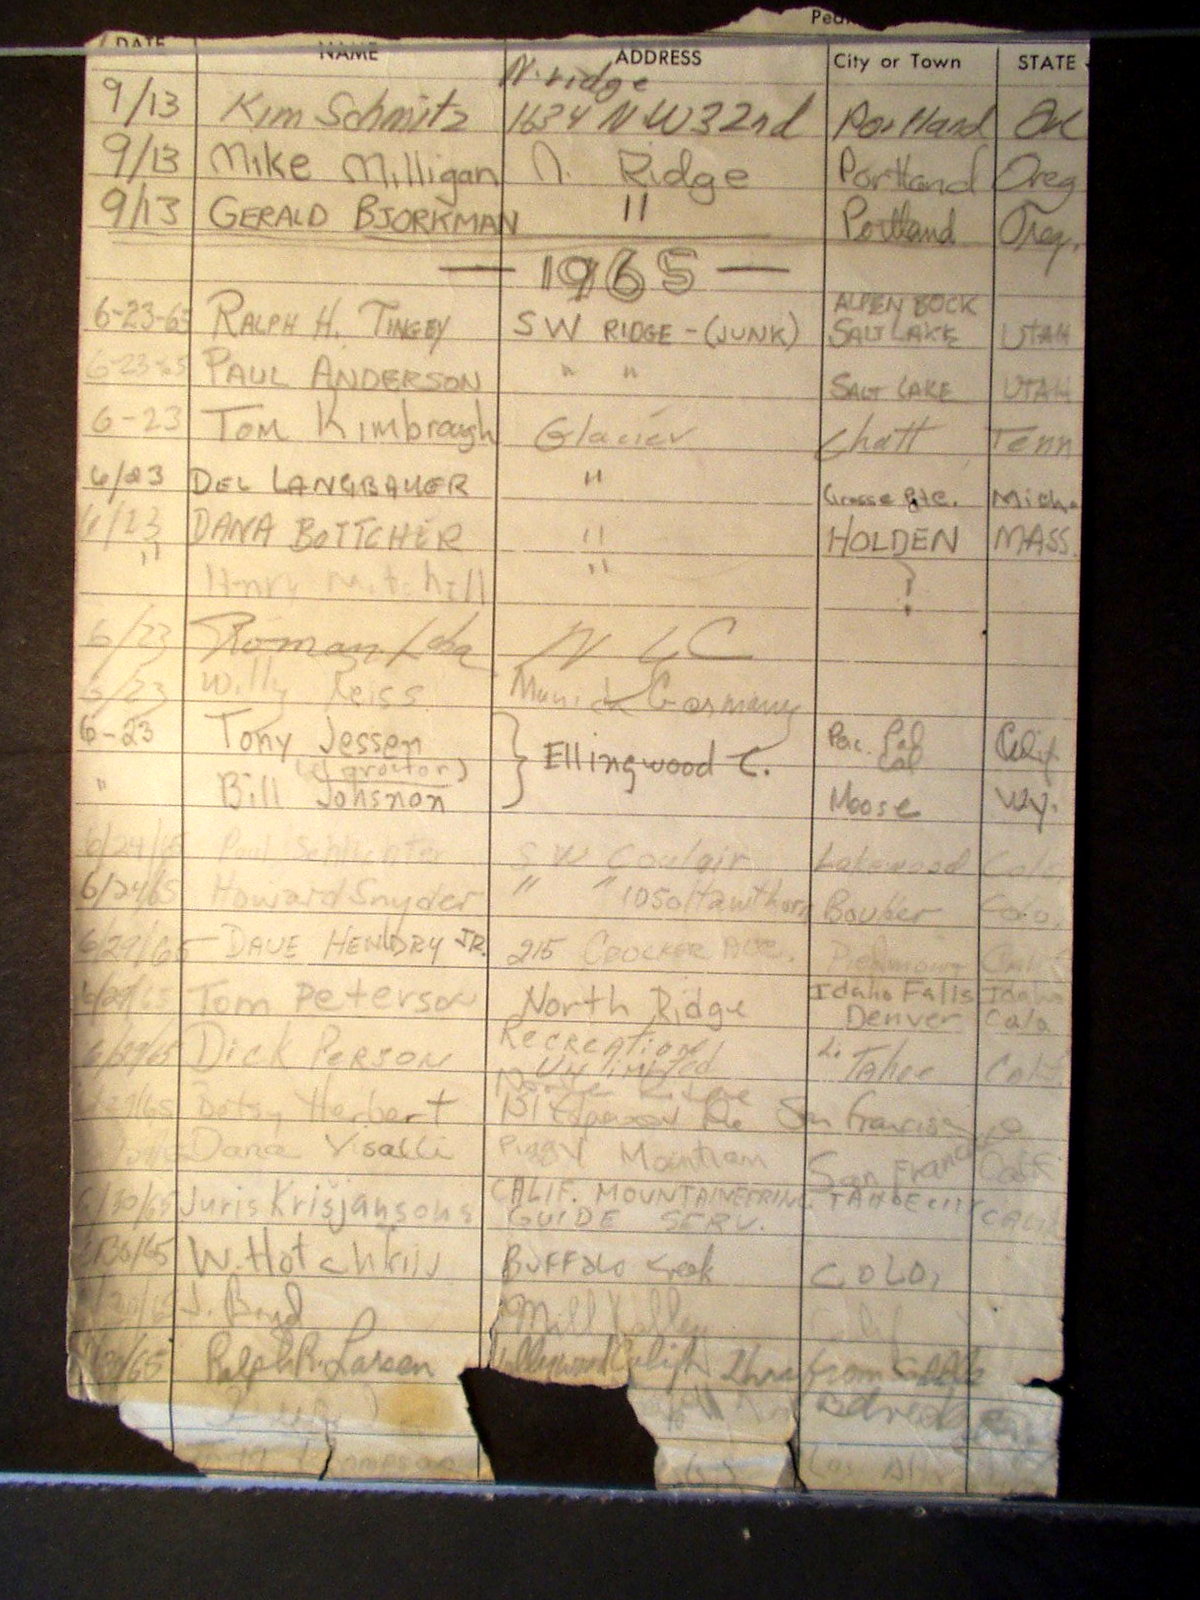 DATE NAME ADDRESS City or Town STATE
N. ridge
9/13 Kim Schmitz 1634 NW 32nd Portland Ore
9/13 Mike Milligan N. Ridge Portland Oreg
9/13 GERALD BJORKMAN " Portland Oreg.
— 1965 —
ALPEN BOCK
6-23-65 RALPH H. TINGEY SW RIDGE - (JUNK) SALT LAKE UTAH
6-23-65 PAUL ANDERSON " " SALT LAKE UTAH
6-23 Tom Kimbrough Glacier Chatt Tenn
6/23 DEL LANGBAUER " Grosse Pte. Mich.
6/23 DANA BOTTCHER " HOLDEN MASS.
" Henry Mitchill " ?
6/23 Roman N L C
6/23 Willy Reiss Munich Germany
6-23 Tony Jessen } Ellingwood C. Pac. Calif
" Bill Johsnon Moose Wy.
6/24/65 Paul Schlichter SW Coulair Lakewood Colo
6/24/65 Howard Snyder " " 1050 Hawthorn Boulder Colo.
6/29/65 DAVE HENDRY JR. 215 CROCKER AVE. Piedmont Calif
6/29/65 Tom Peterson North Ridge Idaho Falls Idaho
Denver Colo
6/29/65 DICK PERSON Recreation Unlimited L. Tahoe Calif
North Ridge
6/29/65 Betsy Herbert Ave San Francisco
Dana Visalli Mountain San Franc Calif
6/30/65 Juris Krišjansons CALIF. MOUNTAINEERING TAHOE CITY CALIF
GUIDE SERV.
6/30/65 W. Hotchkiss Buffalo Creek COLO,
6/30/65 J. Boyd Mill Valley Calif
6/30/65 Ralph R. Larsen Hollywood Calif from Saddle
Thompson Los